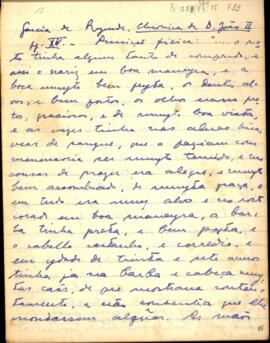 Garcia de Rezende, Chronica de D. João II
pg. XV. - Presença física: ... o ros
to tinha algum tanto de comprido, e
assi o nariz em boa maneyra, e a
boca muyto bem feyta, os dentes alvos
e bem postos, os olhos eram pretos,
graciosos, e de muyta boa vista,
e às vezes tinha nas alvas hũas
veas de sangue, que o faziam com
menencoria ser muyto temido, e nas
cousas de prazer era alegre, e muyto
bem assombrado, de muyta graça, e
em tudo era muy alvo e no rosto
corad em boa maneyra, a bar
ba tinha preta, e bem posta, e
o cabello castanho, e corredio. e
em ydade de trinta e sete annos
tinha já na barba e cabeça muy
tas cãs, de que mostrava conten
tamento, e não consentia que lhe
mondassem algũas. As mãos